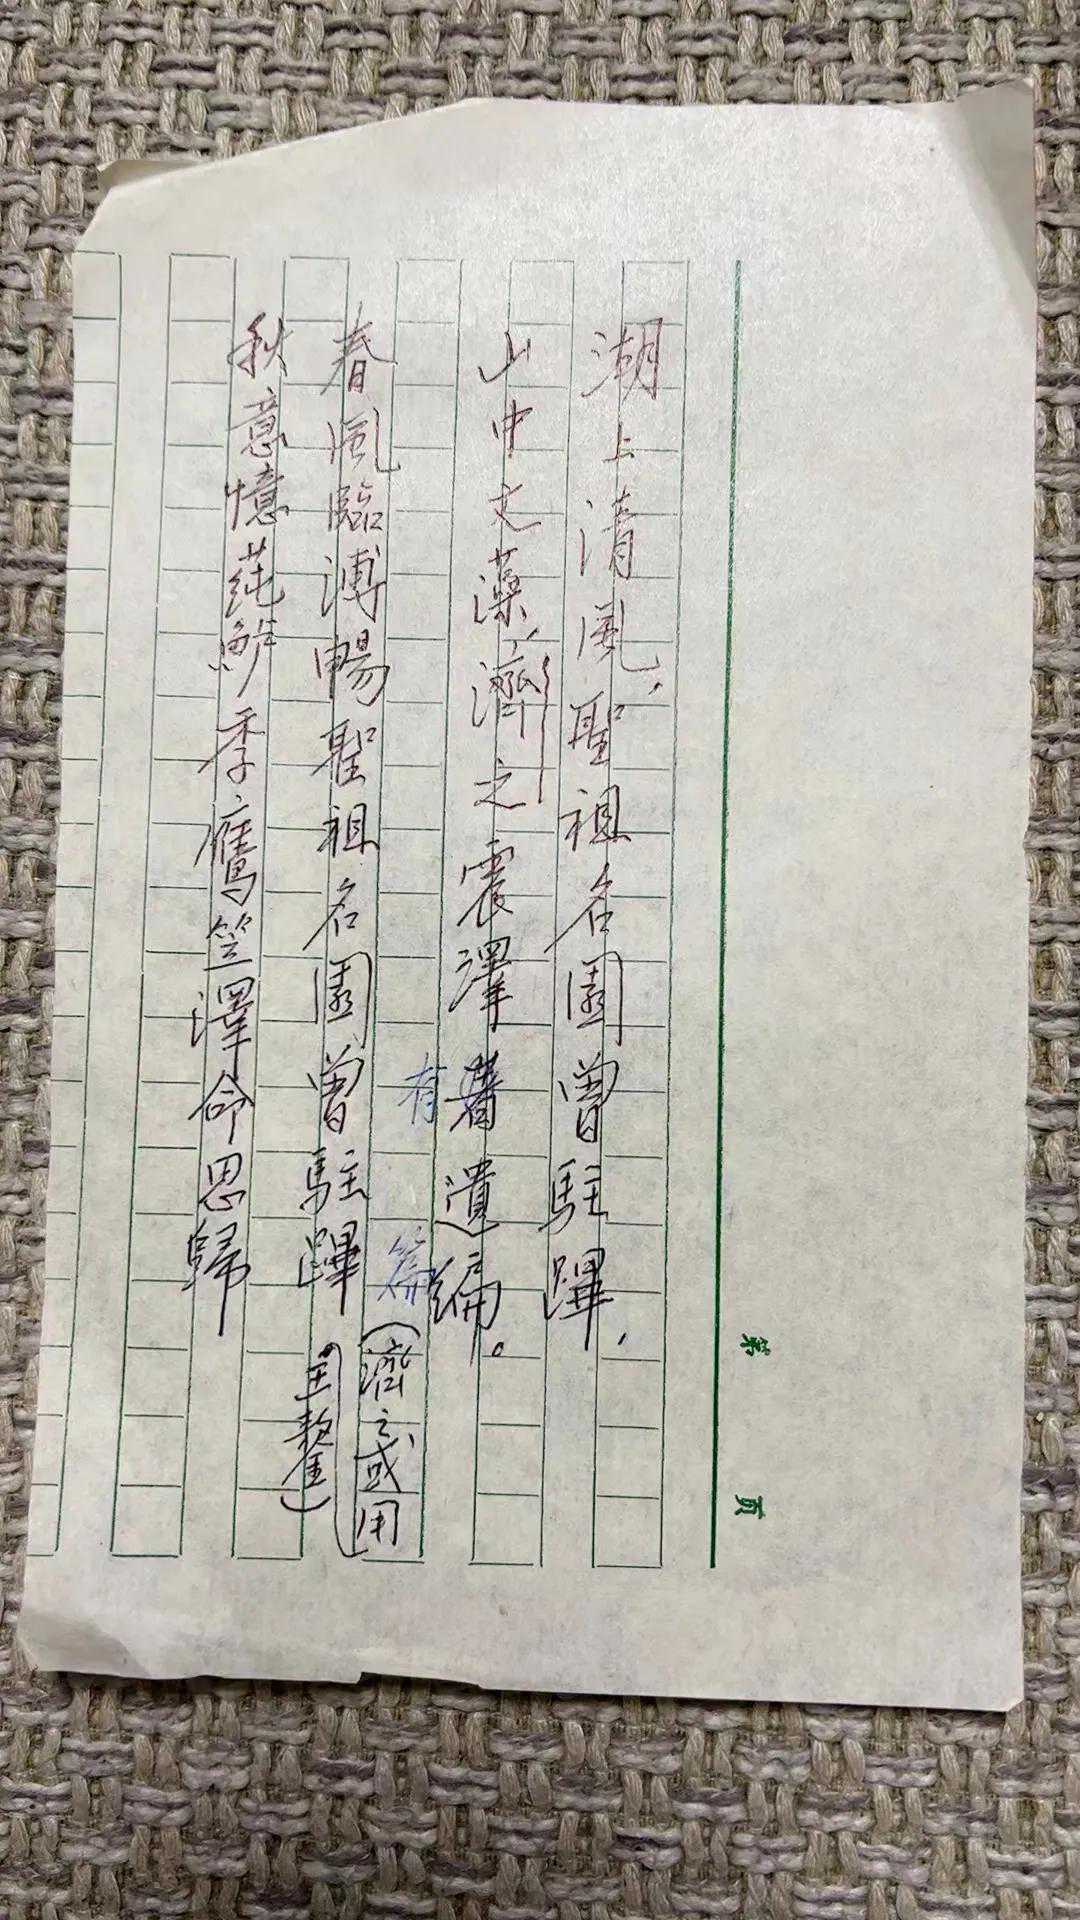 湖上清風，聖祖名園曾駐蹕，
山中文藻，濟之震澤著遺編。
有
篇
（濟之或用
王鏊）
春風臨溥暢聖祖名園曾駐蹕
秋意憶蒓鱸季鷹笠澤命思歸
第 頁